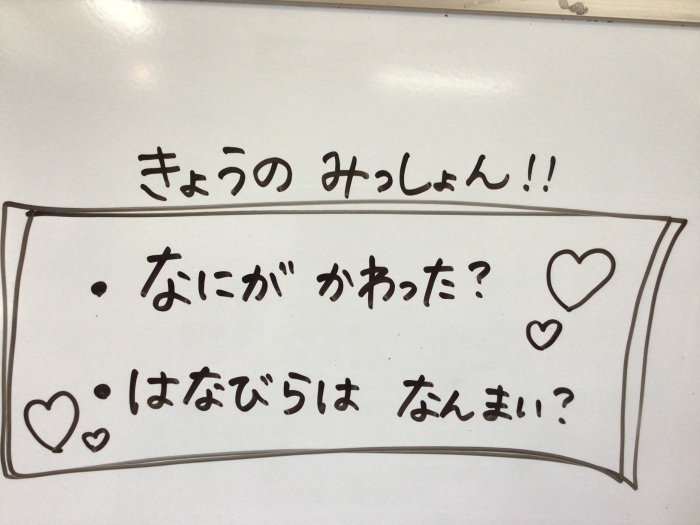 きょうの みっしょん!!
・なにが かわった?
・はなびらは なんまい?